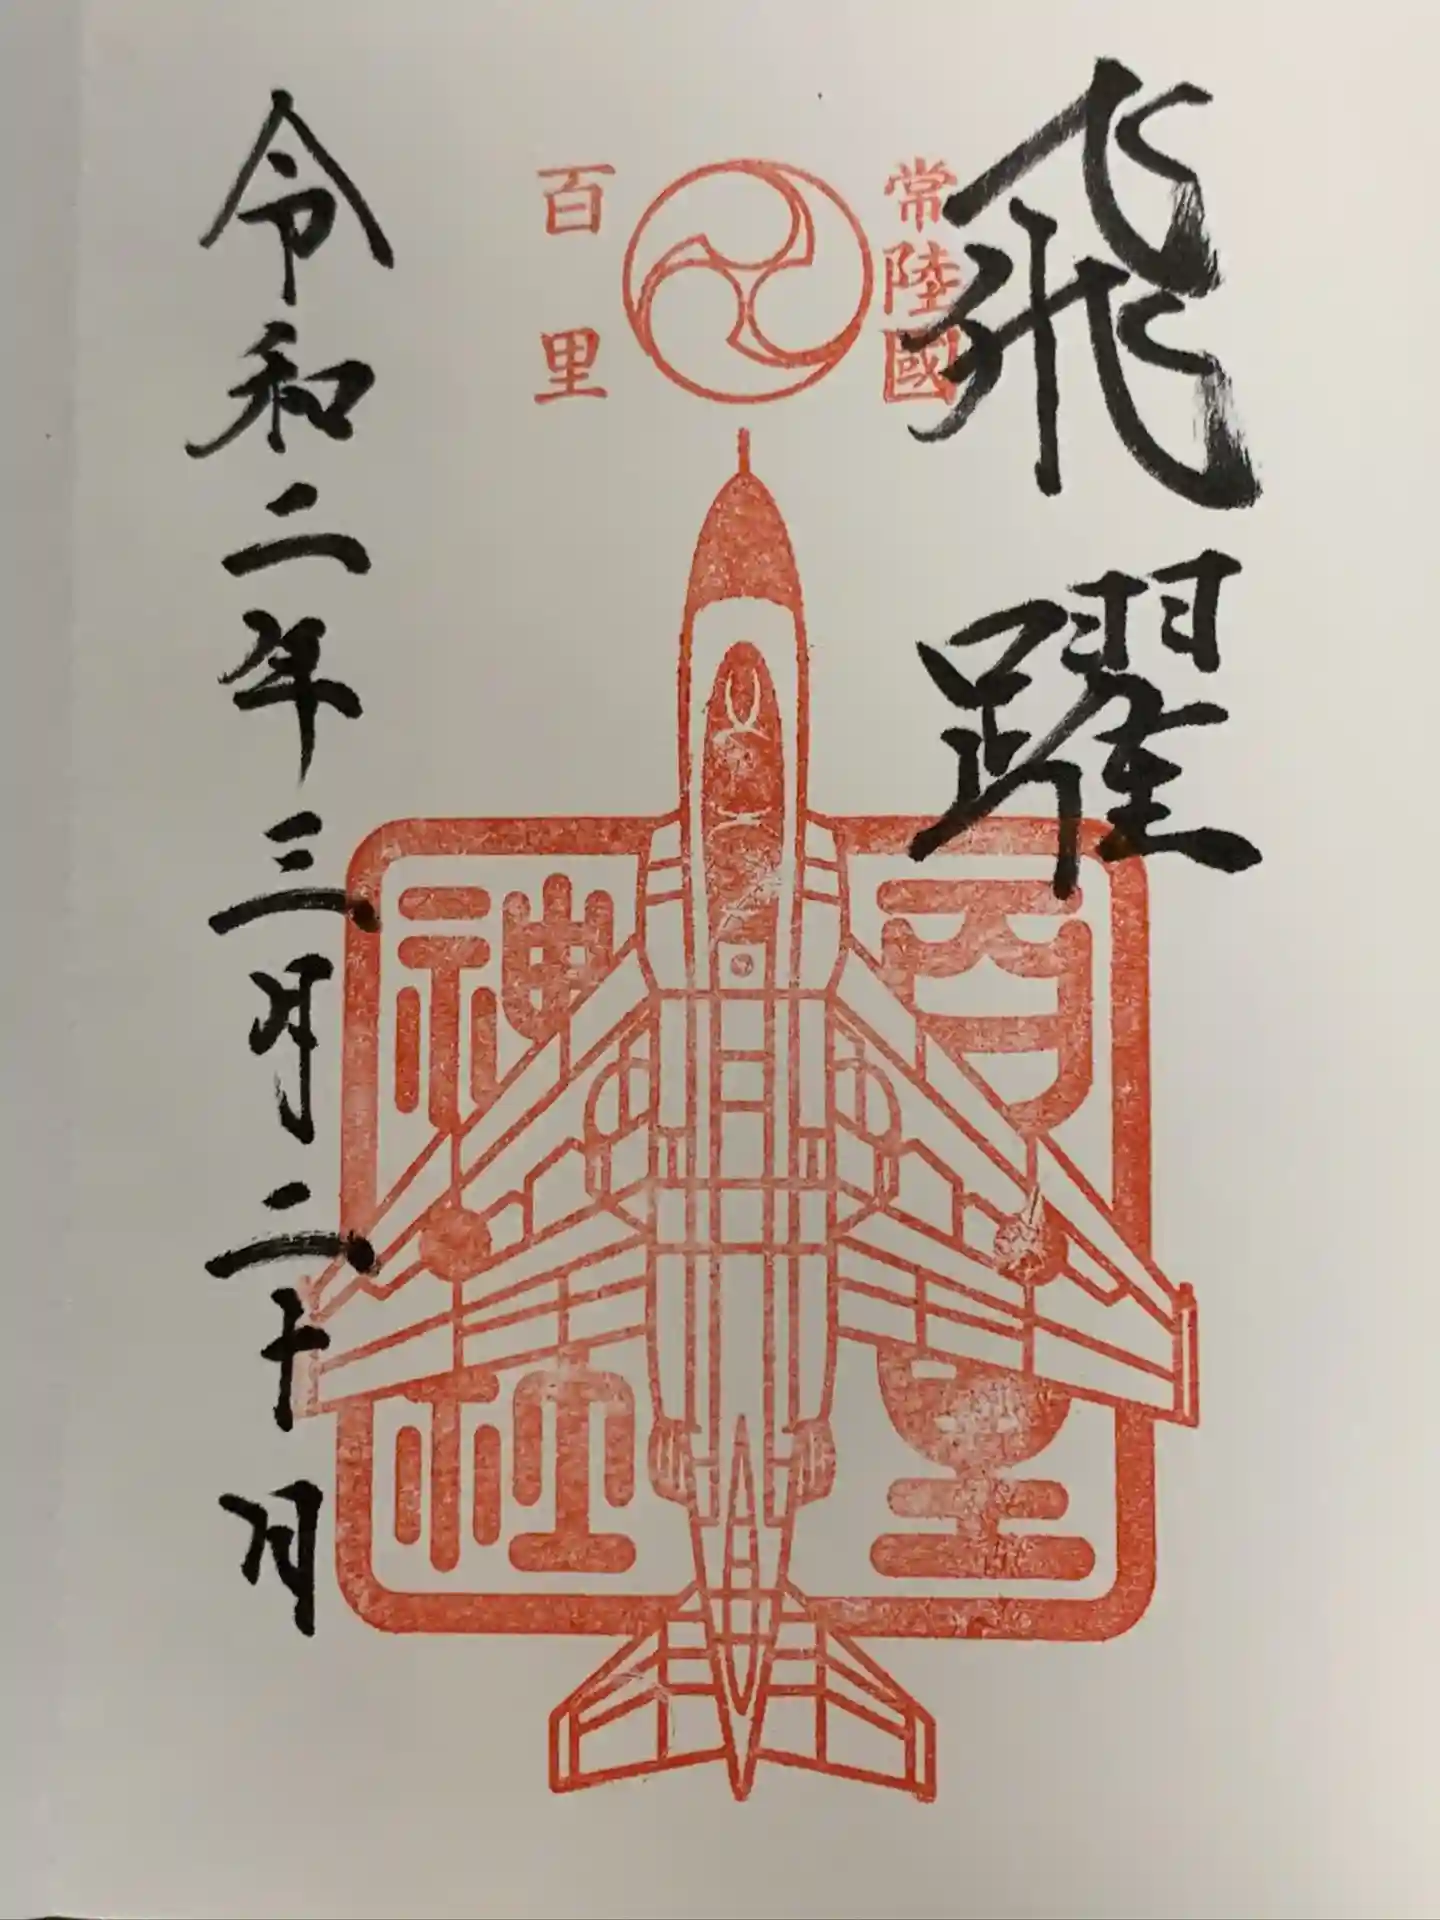 飛躍
常陸國
百里
百里
神社
令和二年三月二十日